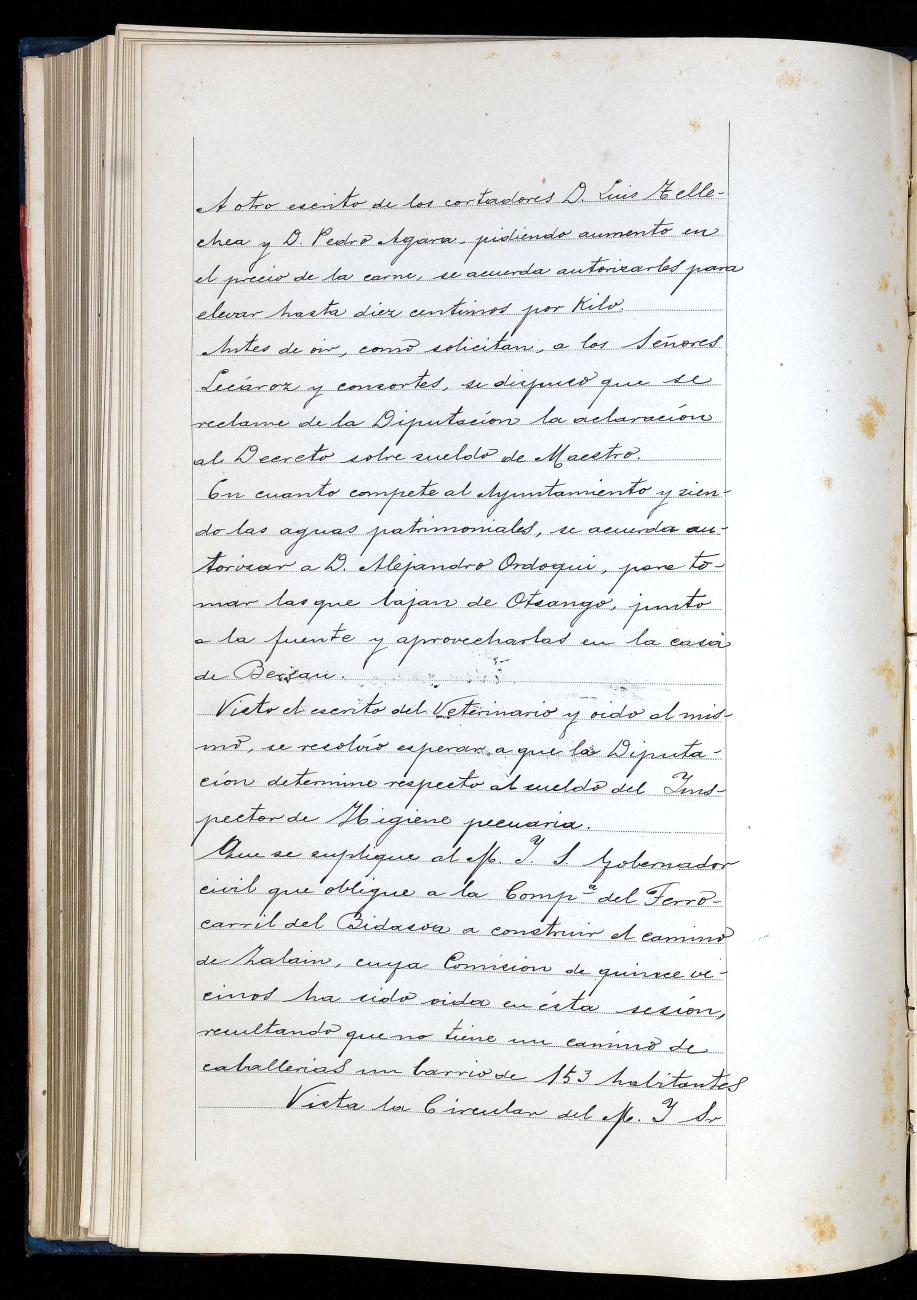 A otro escrito de los cortadores D. Luis Telle-
chea y D. Pedro Agara, pidiendo aumento en
el precio de la carne, se acuerda autorizarles para
elevar hasta diez centimos por Kilo.
Antes de oir, como solicitan, a los Señores
Lecároz y consortes, se dispuso que se
reclame de la Diputación la aclaración
al Decreto sobre sueldo de Maestro.
En cuanto compete al Ayuntamiento y sien-
do las aguas patrimoniales, se acuerda au-
torizar a D. Alejandro Ordoqui, para to-
mar las que bajan de Otsango, junto
a la fuente y aprovecharlas en la casa
de Berrau.
Visto el escrito del Veterinario y oido al mis-
mo, se resolvió esperar a que la Diputa-
ción determine respecto al sueldo del Ins-
pector de Higiene pecuaria.
Que se suplique al M. Y. S. Gobernador
civil que obligue a la Compª del Ferro-
carril del Bidasoa a construir el camino
de Zalain, cuya Comisión de quince ve-
cinos ha sido oida en ésta sesión,
resultando que no tiene un camino de
caballerias un barrio de 153 habitantes
Vista la Circular del M. Y Sr